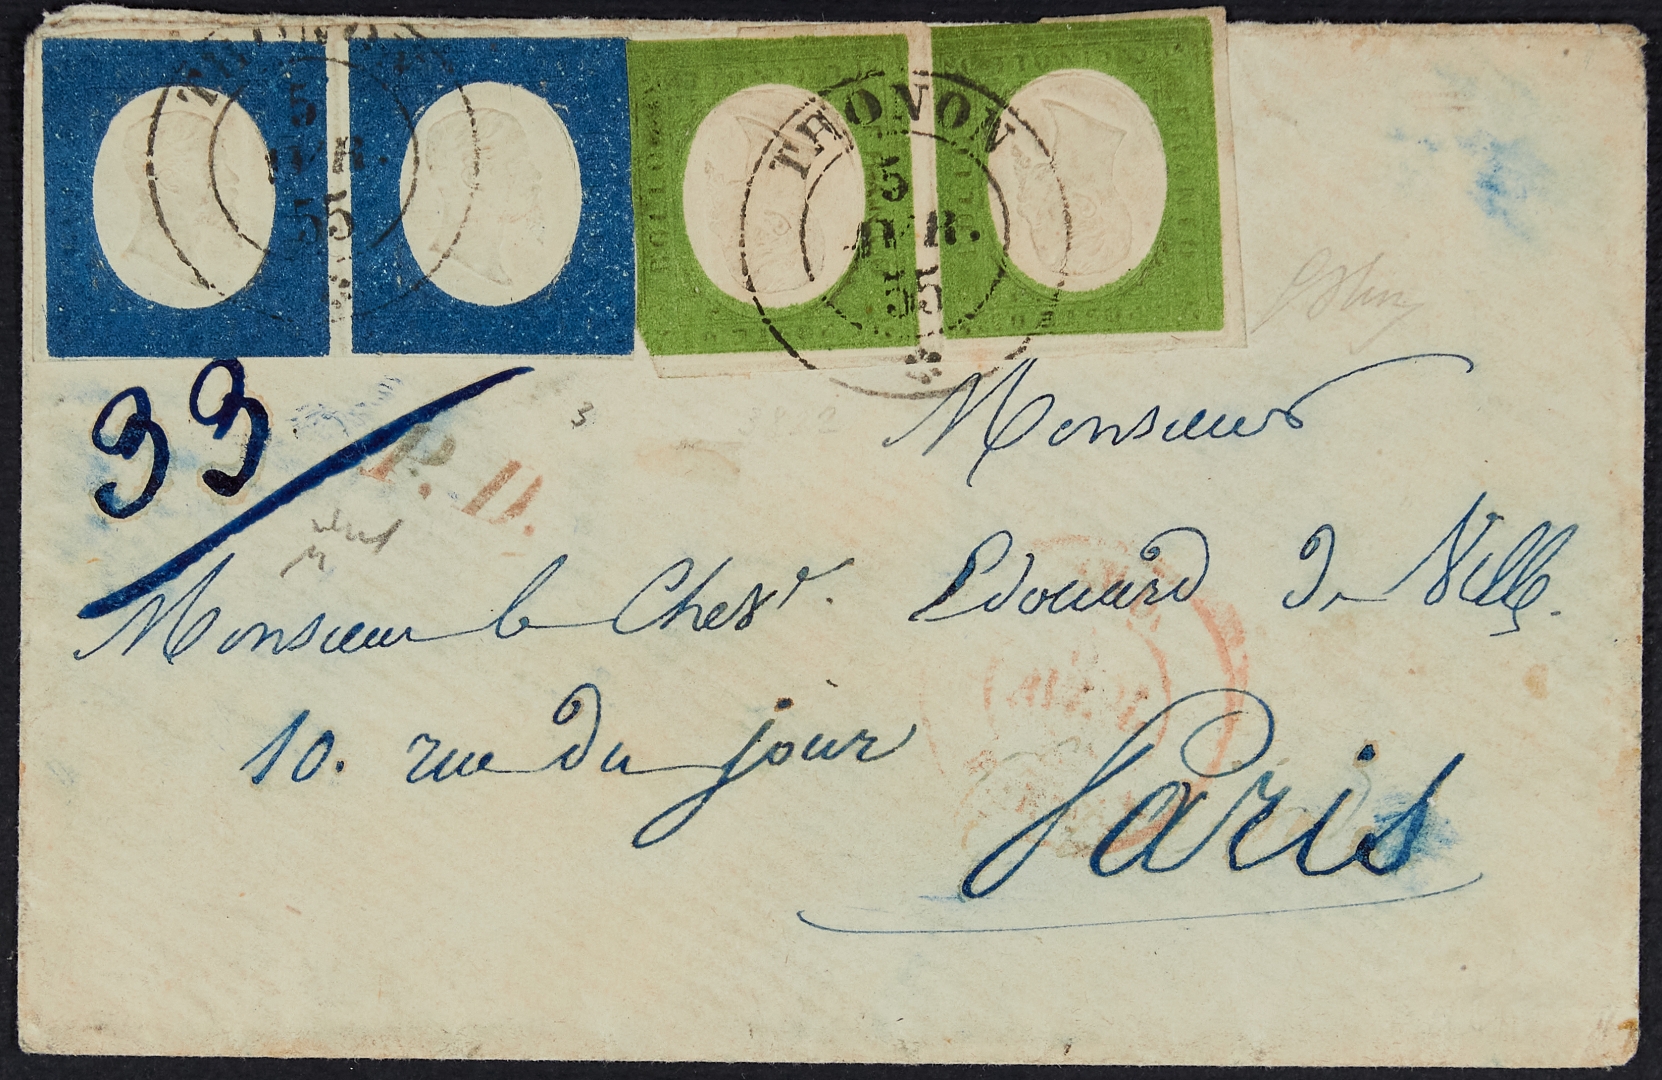 THONON
5
AVR.
55
THONON
5
AVR.
55
33
P. D.
3
Monsieur
Monsieur le Chevr. Edouard de Ville.
10. rue du jour
Paris